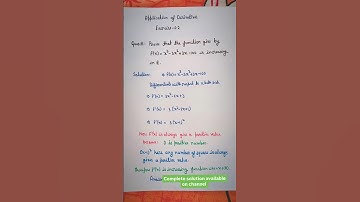 Application of Derivative
Exercise-6.2
Ques:- Prove that the function give by
f(x) = x³-3x²+3x-100 is increasing
in R.
Solution: ⇒ f(x) = x³-3x²+3x-100
Differentiate with respect to x both side
⇒ f'(x) = 3x²-6x+3
⇒ f'(x) = 3(x²-2x+1)
⇒ f'(x) = 3(x-1)²
Now f'(x) is always give a positive value
because: 3 is positive number
(x-1)² here any number of square is always
gives a positive value.
Therefore f'(x) is increasing function
Complete solution available
on channel